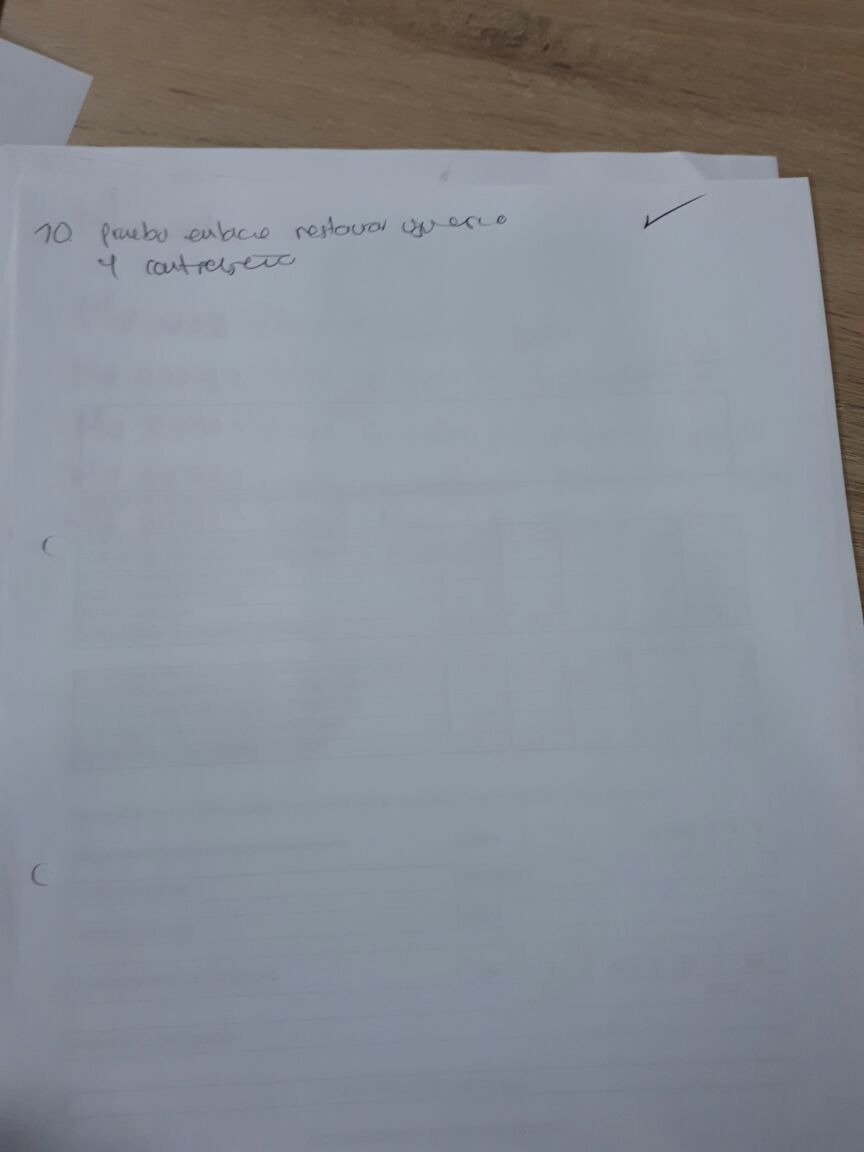 10. Prueba enlace restaurar usuario
y contraseña